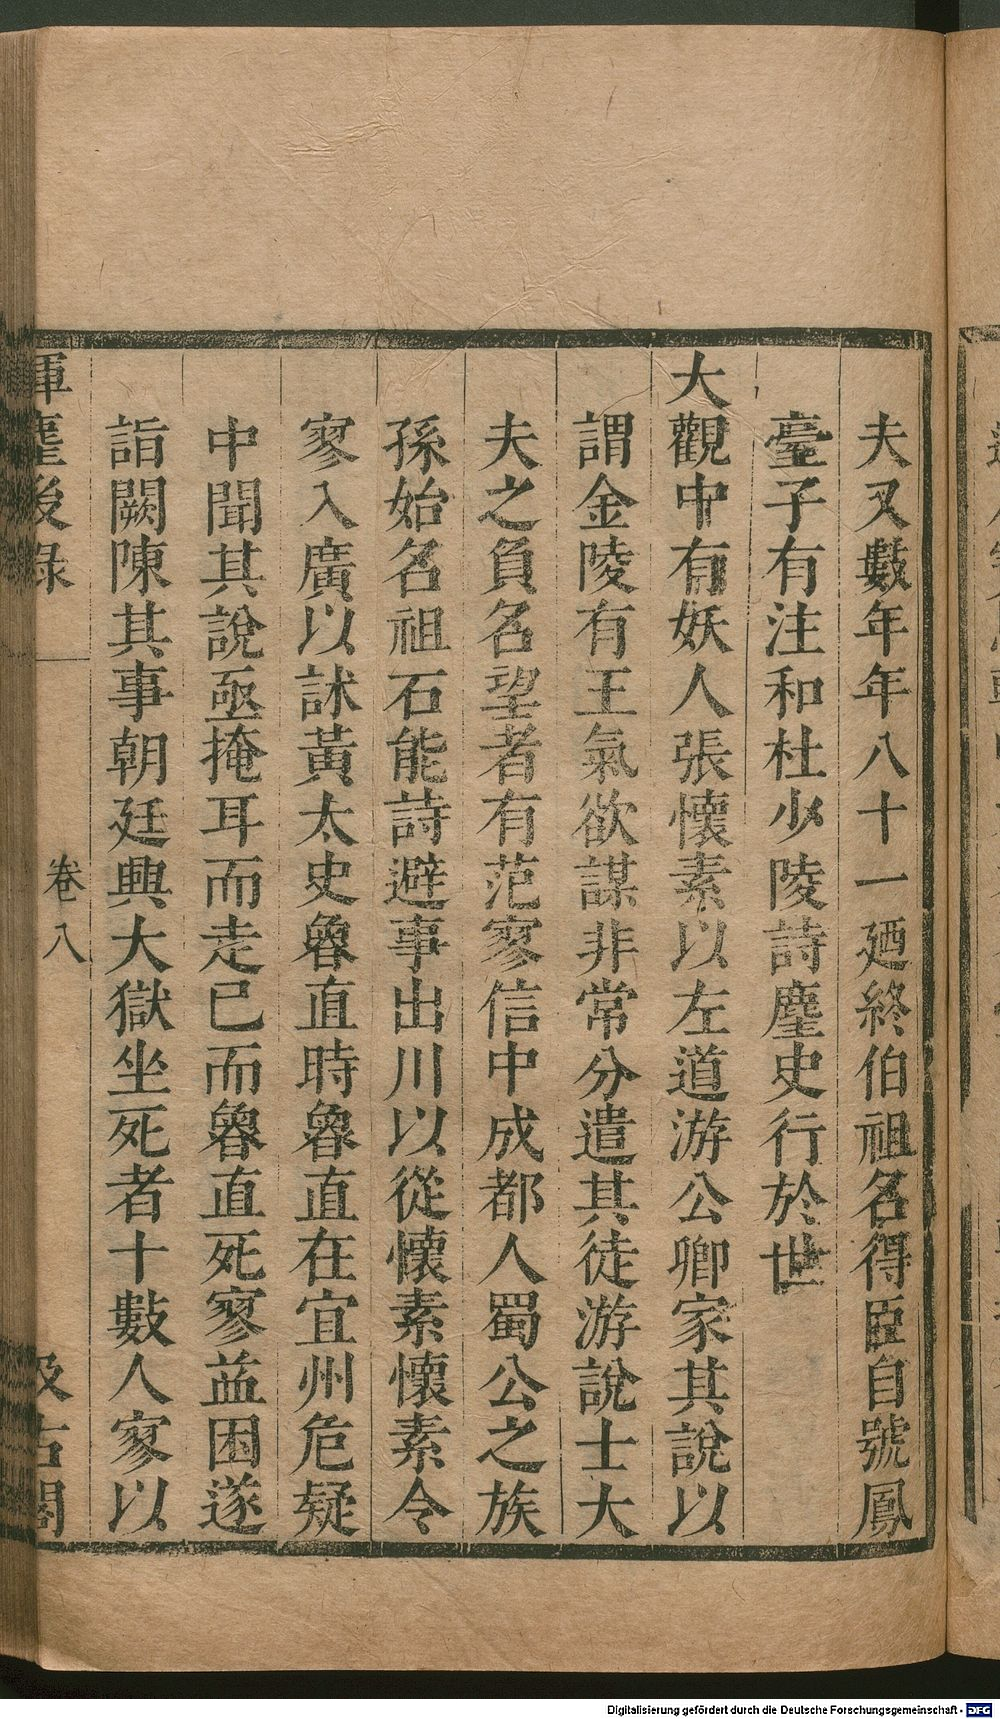 夫又數年年八十一廼終伯祖名得臣自號鳳
臺子有注和杜少陵詩麈史行於世
大觀中有妖人張懷素以左道游公卿家其說以
謂金陵有王氣欲謀非常分遣其徒游說士大
夫之負名望者有范寥信中成都人蜀公之族
孫始名祖石能詩避事出川以從懷素懷素令
寥入廣以訹黃太史魯直時魯直在宜州危疑
中聞其說亟掩耳而走已而魯直死寥益困遂
詣闕陳其事朝廷興大獄坐死者十數人寥以
揮麈後錄
卷八
汲古閣
Digitalisierung gefördert durch die Deutsche Forschungsgemeinschaft - DFG